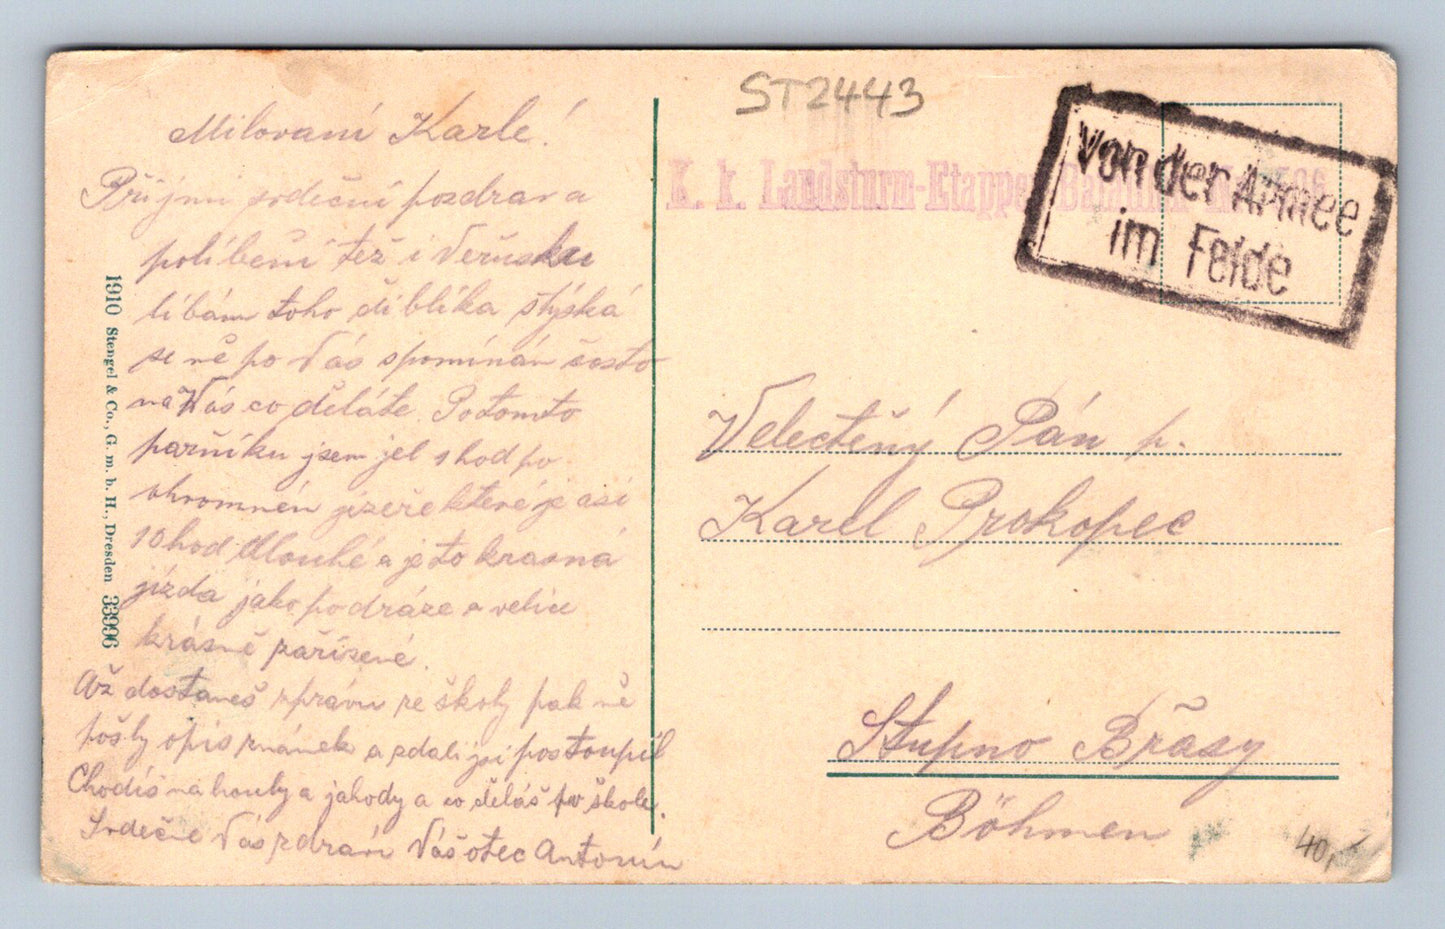 ST2443
Milovaní Karle!
Přijmi srdeční pozdrav a
políbení též i Verušku
líbám toho diblíka stýská
se mě po Vás spomínán často
na Vás co děláte. Potomto
parníku jsem jel 1 hod po
ohromnén jezeře které je asi
10 hod dlouhé a je to krasná
jízda jako po dráze a velice
krásně zařízené.
Až dostaneš zprávu ze školy pak mě
pošly opis známek a zdali jsi postoupil
Chodíš na houby a jahody a co děláš po škole.
Srdečně Vás zdraví Váš otec Antonín
1910 Stengel & Co., G. m. b. H., Dresden 33996
K. k. Landsturm-Etappen-Bataillon
Von der Armee
im Felde
Velectěný Pán p.
Karel Prokopec
Stupno Břasy
Böhmen
40,-